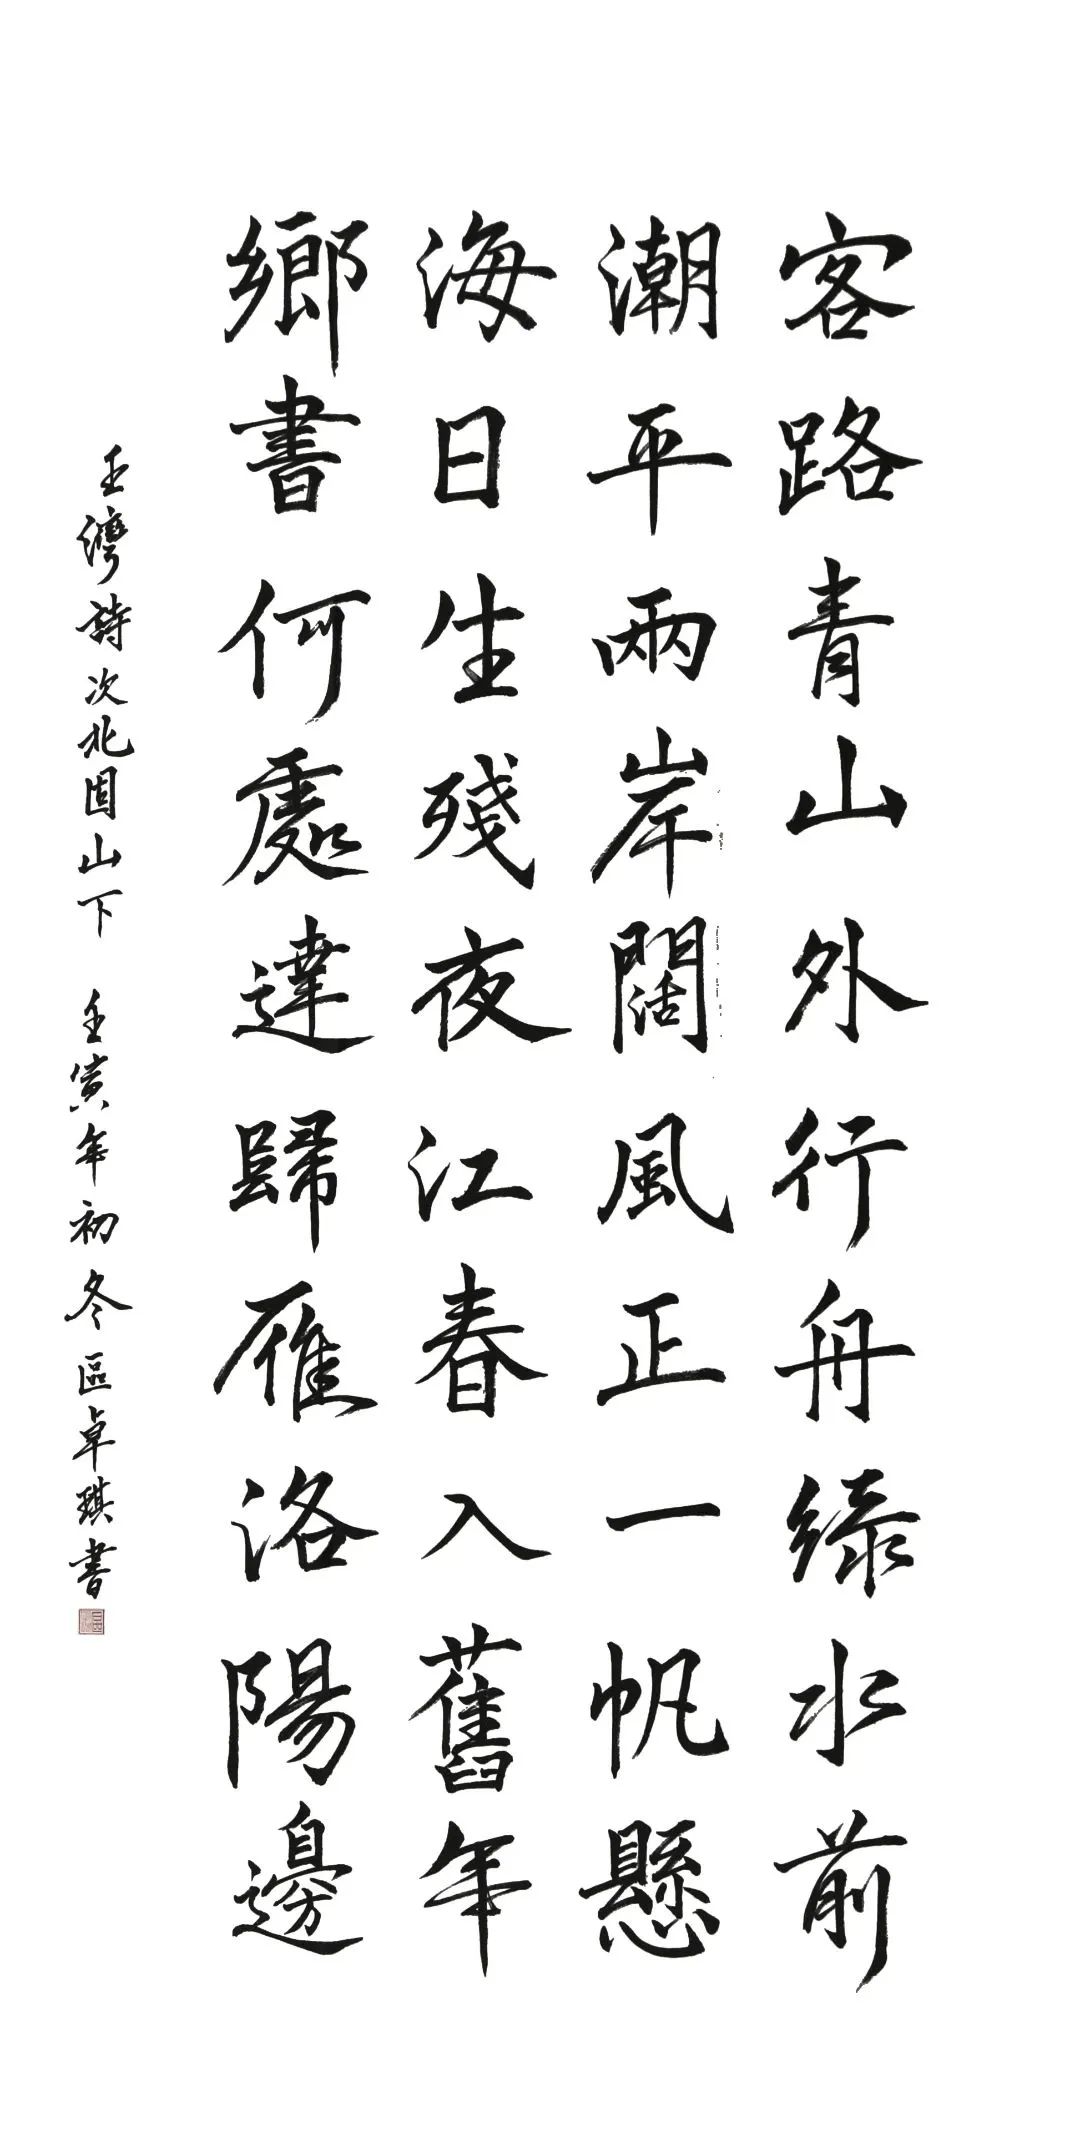 客路青山外行舟綠水前
潮平兩岸闊風正一帆懸
海日生殘夜江春入舊年
鄉書何處達歸雁洛陽邊
王灣詩次北固山下 壬寅年初冬區卓琪書